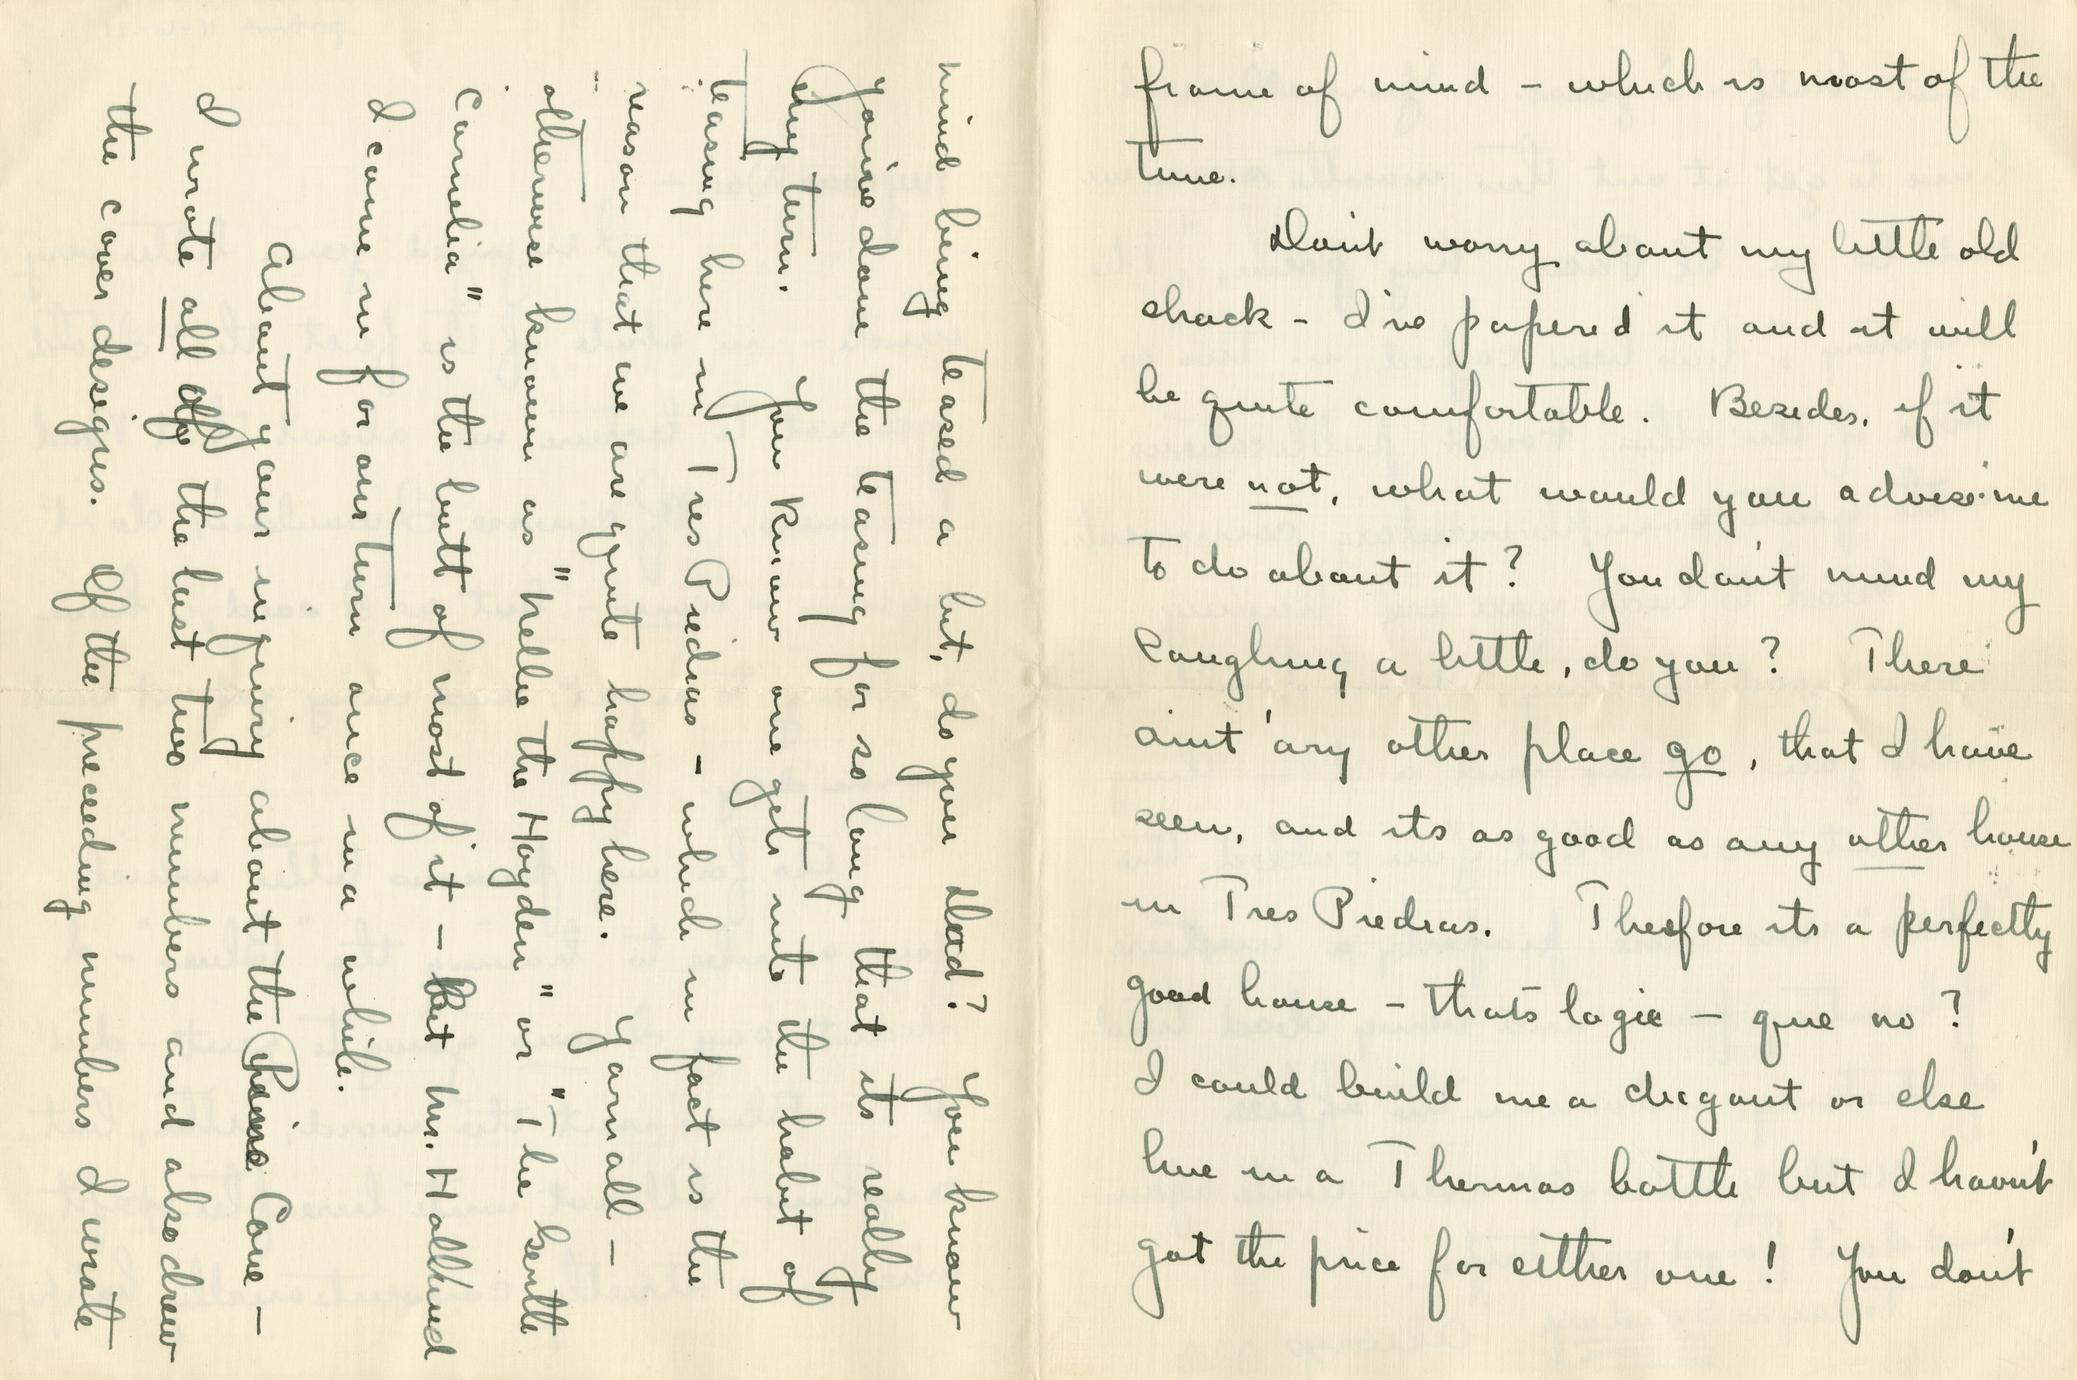 frame of mind - which is most of the
time.
Don't worry about my little old
shack - I've papered it and it will
be quite comfortable. Besides, if it
were not, what would you advise me
to do about it? You don't mind my
roughing a little, do you? There
aint 'ary other place go, that I have
seen, and its as good as any other house
in Tres Piedras. Thefore its a perfectly
good house - thats logic - que no?
I could build me a dugout or else
live in a Thermos bottle but I haven't
got the price for either one! You don't
mind being teased a bit, do you Dad? You know
you've done the teasing for so long that its really
my turn. You know one gets into the habit of
teasing here in Tres Piedras - which in fact is the
reason that we are quite happy here. Yarnall -
otherwise known as "Nellie the Hoyden" or "The Gentle
Cornelia" is the butt of most of it - But Mr. Hall and
I come in for our turn once in a while.
About your inquiry about the Pine Cone -
I wrote all of the last two numbers and also drew
the cover designs. Of the preceeding numbers I wrote